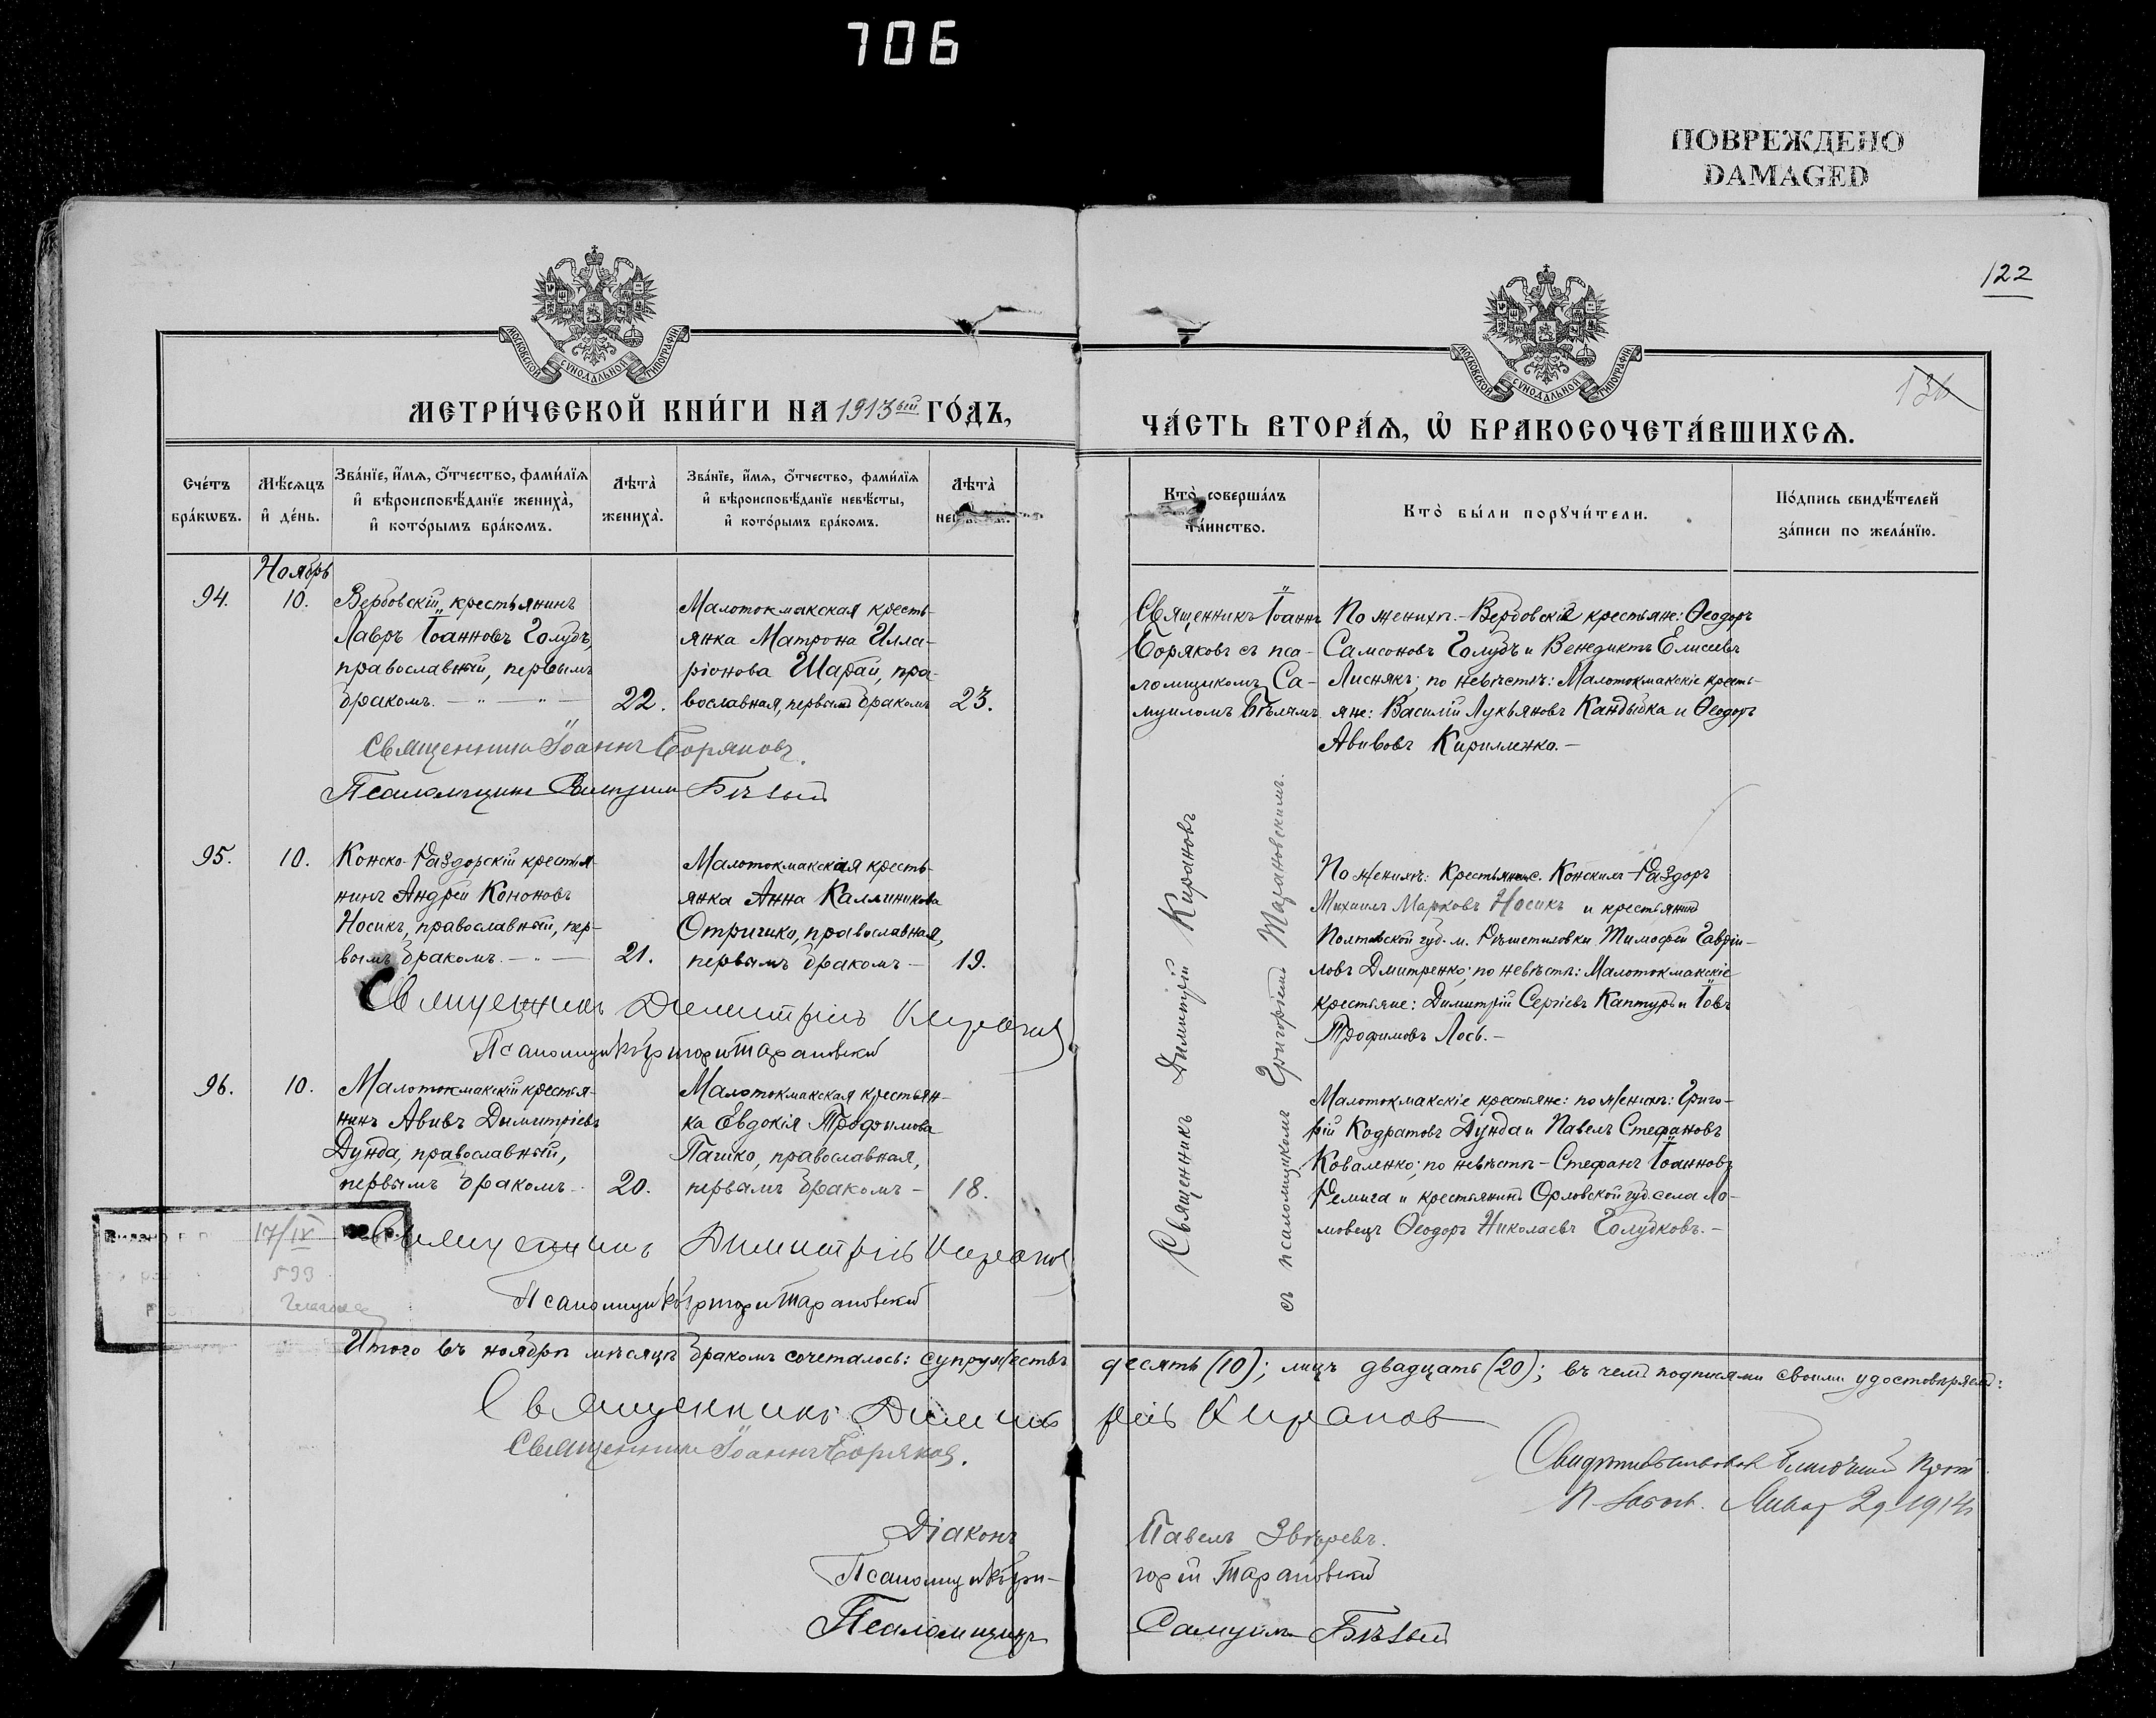 706
ПОВРЕЖДЕНО
DAMAGED
122
МОСКОВСКОЙ СѴНОДАЛЬНОЙ ТИПОГРАФІИ
МОСКОВСКОЙ СѴНОДАЛЬНОЙ ТИПОГРАФІИ
136
МЕТРИ́ЧЕСКОЙ КНИ́ГИ НА 1913ый ГО́ДЪ,
ЧА́СТЬ ВТОРА́Ѧ, Ѡ҆ БРАКОСОЧЕТА́ВШИХСѦ.
Сче́тъ бра́кѡвъ.
Мѣ́сѧцъ и҆ де́нь.
Зва́нїе, и҆́мѧ, ѻ҆́тчество, фами́лїѧ и҆ вѣроисповѣ́данїе жениха̀, и҆ кото́рымъ бра́комъ.
Лѣта̀ жениха̀.
Зва́нїе, и҆́мѧ, ѻ҆́тчество, фами́лїѧ и҆ вѣроисповѣ́данїе невѣ́сты, и҆ кото́рымъ бра́комъ.
Лѣта̀
Кто̀ соверша́лъ та́инство.
Кто̀ бы́ли порꙋчи́тели.
По́дпись свидѣ́телей за́писи по жела́нїю.
Ноябрь
94.
10.
Вербовскій крестьянинъ
Лавръ Іоанновъ Голубъ,
православный, первымъ
бракомъ.
22.
Малотокмакская кресть-
янка Матрона Илла-
ріонова Шарай, пра-
вославная, первымъ бракомъ
23.
Священникъ Іоаннъ
Боряковъ съ пса-
ломщикомъ Са-
муиломъ Бѣлымъ.
По женихѣ.- Вербовскіе крестьяне: Ѳеодоръ
Самсоновъ Голубъ и Венедиктъ Елисеевъ
Лиснякъ; по невѣстѣ: Малотокмакскіе кресть-
яне: Василій Лукьяновъ Кандыбка и Ѳеодоръ
Авивовъ Кириленко.-
Священникъ Іоаннъ Боряковъ.
Псаломщикъ Самуилъ Бѣлый
95.
10.
Конско-Раздорскій крестья-
нинъ Андрей Кононовъ
Носикъ, православный, пер-
вымъ бракомъ.
21.
Малотокмакская кресть-
янка Анна Каллиникова
Отришко, православная,
первымъ бракомъ-
19.
Священникъ Димитрій Кирановъ
съ псаломщикомъ Григоріемъ Тарановскимъ.
По женихѣ: Крестьяне с. Конскихъ-Раздоръ
Михаилъ Марковъ Носикъ и крестьянинъ
Полтавской губ. м. Рѣшетиловки Тимофей Гавріи-
ловъ Дмитренко; по невѣстѣ: Малотокмакскіе
крестьяне: Димитрій Сергіевъ Каптуръ и Іовъ
Трофимовъ Лось.-
Священникъ Димитрій Кирановъ
Псаломщикъ Григорій Тарановскій
96.
10.
Малотокмакскій крестья-
нинъ Авивъ Дымитріевъ
Дунда, православный,
первымъ бракомъ-
20.
Малотокмакская крестьян-
ка Евдокія Трофимова
Пашко, православная,
первымъ бракомъ-
18.
Малотокмакскіе крестьяне: по женихѣ: Григо-
рій Кодратовъ Дунда и Павелъ Стефановъ
Коваленко; по невѣстѣ- Стефанъ Іоанновъ
Ремига и крестьянинъ Орловской губ. села Ло-
мовецъ Ѳеодоръ Николаевъ Голубковъ.-
17/IV
593
Священникъ Димитрій Кирановъ
Псаломщикъ Григорій Тарановскій
Итого въ ноябрѣ мѣсяцѣ бракомъ сочеталось: супружествъ десять (10); лицъ двадцать (20); въ чемъ подписями своими удостовѣряемъ:
Священникъ Димитрій Кирановъ
Священникъ Іоаннъ Боряковъ.
Свидѣтельствовалъ Благочинный Прот.
29 1914
Діаконъ Павелъ Звѣревъ.
Псаломщикъ Григорій Тарановскій
Псаломщикъ Самуилъ Бѣлый